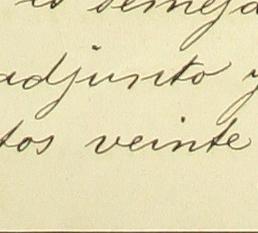 es semeja
adjunto y
tos veinte